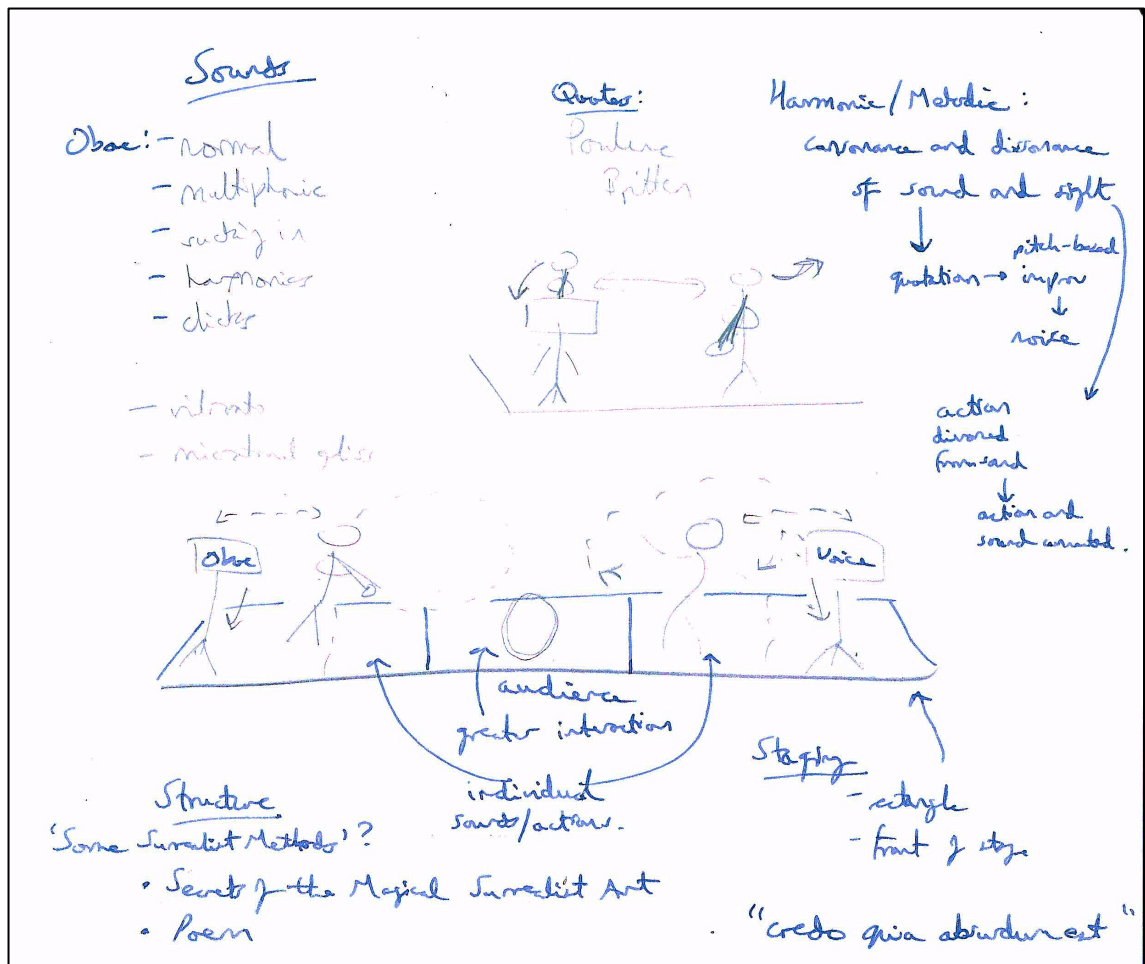 Sounds
Oboe: - normal
- multiphonic
- sucking in
- harmonics
- clicks
- vibrato
- microtonal gliss
Quotes:
Poulenc
Britten
Harmonic/Melodic:
consonance and dissonance
of sound and sight
pitch-based
quotation → improv
↓
noise
action
divorced
from sound
↓
action and
sound connected.
Oboe
Voice
audience
greater interactions
individual
sounds/actions.
Staging
- rectangle
- front of stage
Structure
'Some Surrealist Methods'?
• Secrets of the Magical Surrealist Art
• Poem
"credo quia absurdum est"